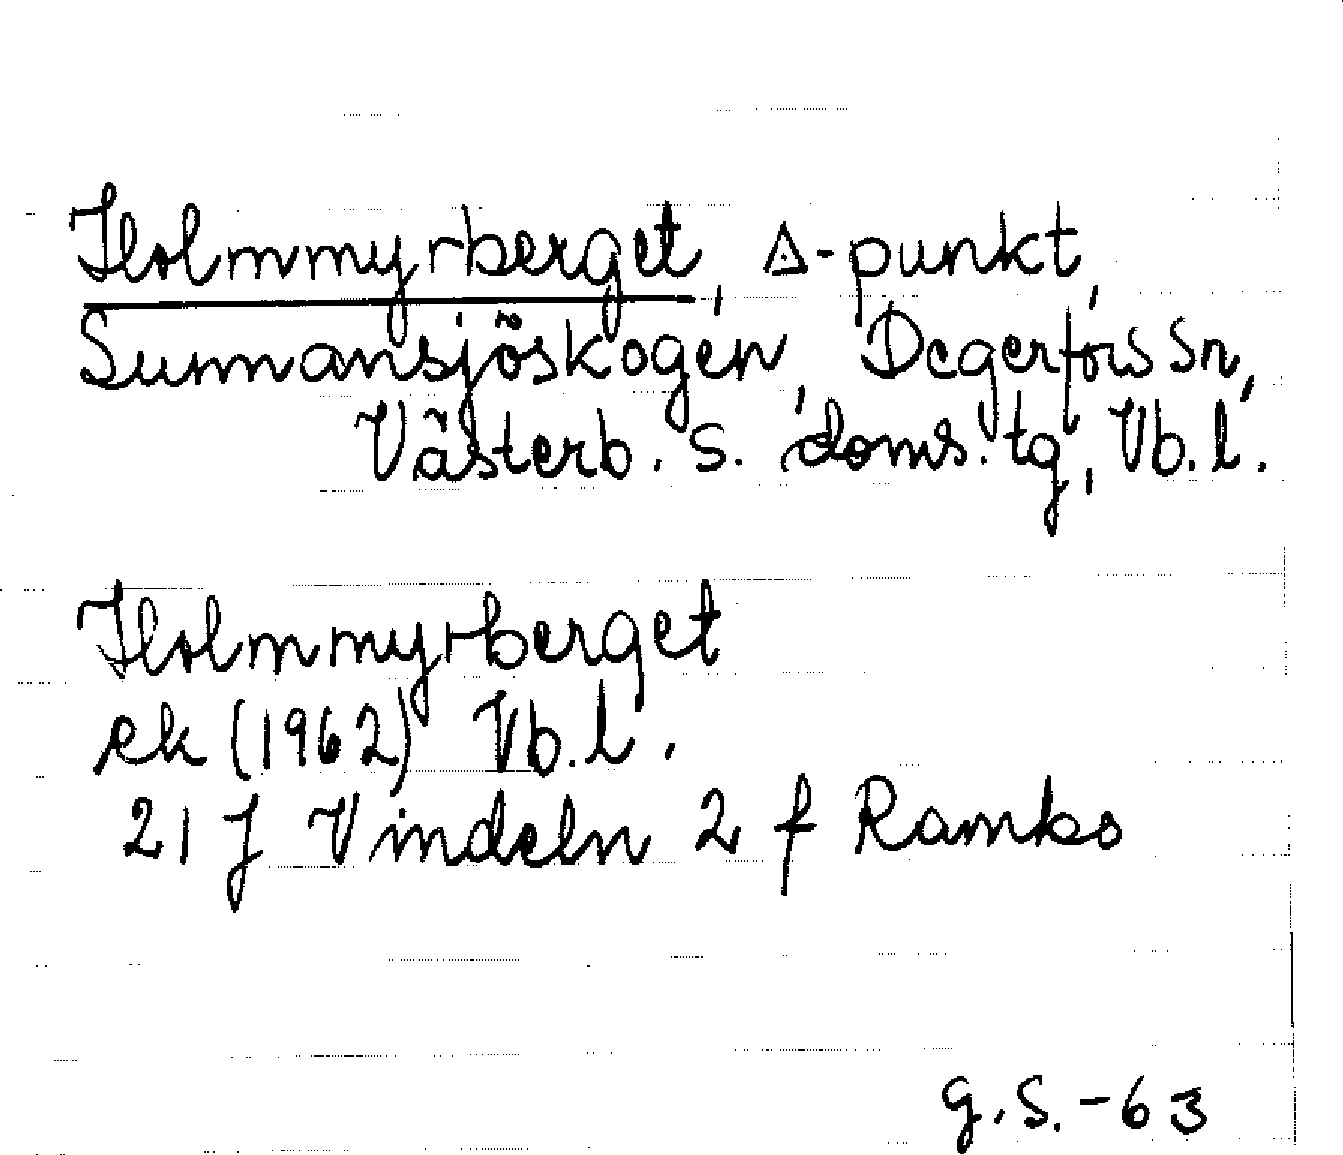 Holmmyrberget, ◬-punkt,
Sunnansjöskogen, Degerfors sn,
Västerb. s. doms. tg, Vb. l.
Holmmyrberget
ek (1962) Vb. l.
21 J Vindeln 2 f Rambo
G. S. -63